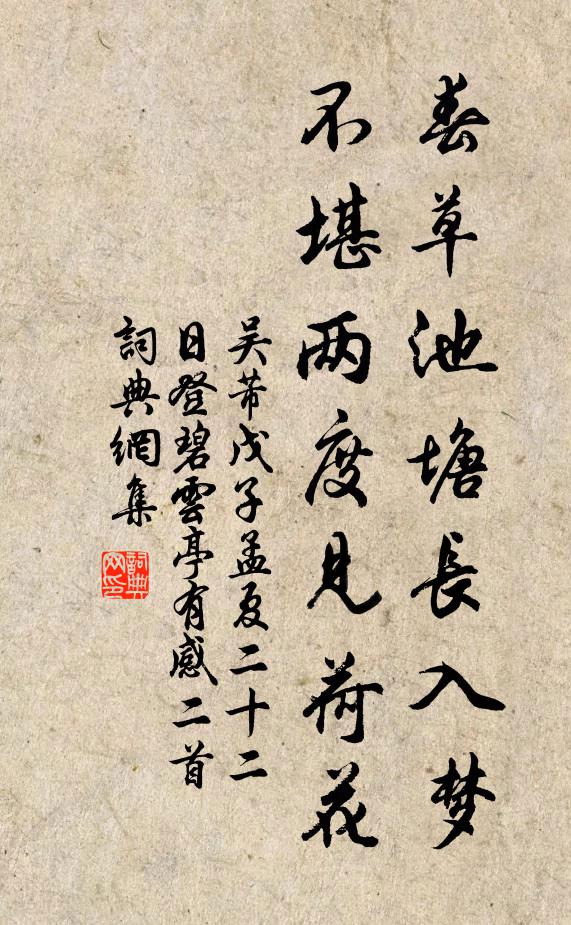 春草池塘長入梦
不堪两度見荷花
吴芾戊子孟夏二十二
日登碧雲亭有感二首
詞典網集
詞典
网印